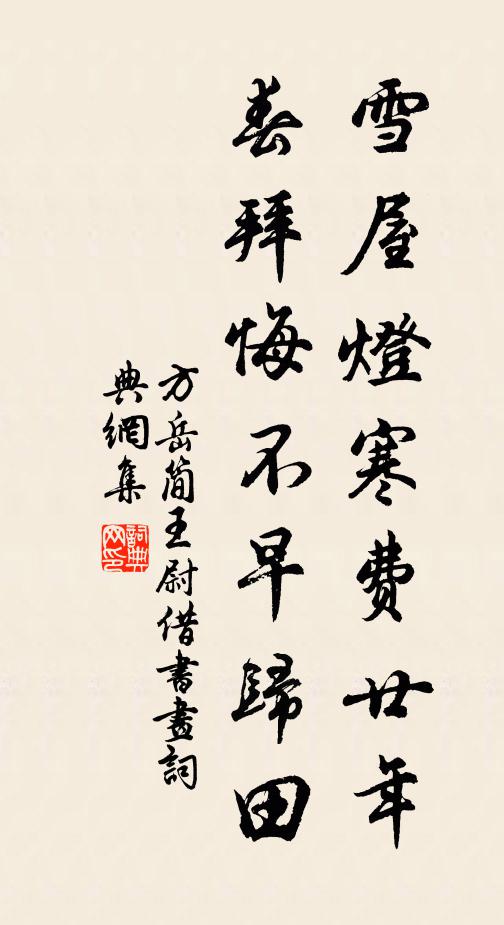 雪屋燈寒費廿年
春拜悔不早歸田
方岳簡王尉借書畫詞
典網集
詞典網印